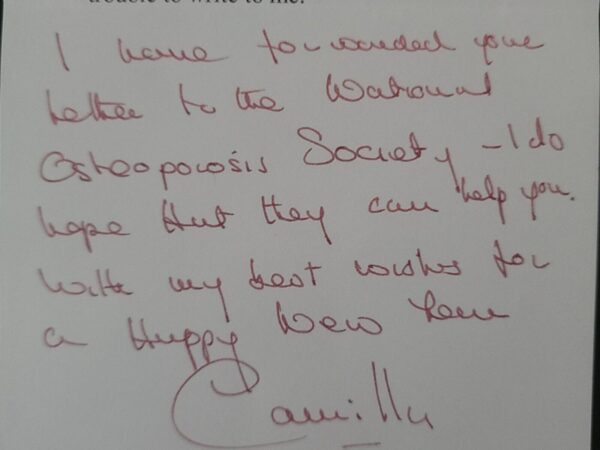 trouble to write to me.
I have forwarded your
letter to the National
Osteoporosis Society – I do
hope that they can help you.
With my best wishes for
a Happy New Year
Camilla